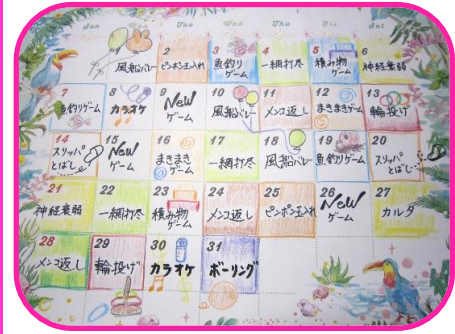 Sun Mon Tue Wed Thu Fri Sat
風船バレー
2 ピンポン玉入れ
3 魚釣り
ゲーム
4 一網打尽
5 積み物
ゲーム
6 神経衰弱
7 魚釣りゲーム
8 カラオケ
9 New
ゲーム
10 風船バレー
11 メンコ返し
12 まきまき
ゲーム
13 輪投げ
14 スリッパ
とばし
15 New
ゲーム
16 まきまき
ゲーム
17 一網打尽
18 風船バレー
19 魚釣りゲーム
20 スリッパ
とばし
21 神経衰弱
22 一網打尽
23 積み物
ゲーム
24 メンコ返し
25 ピンポン玉入れ
26 New
ゲーム
27 カルタ
28 メンコ返し
29 輪投げ
30 カラオケ
31 ボーリング